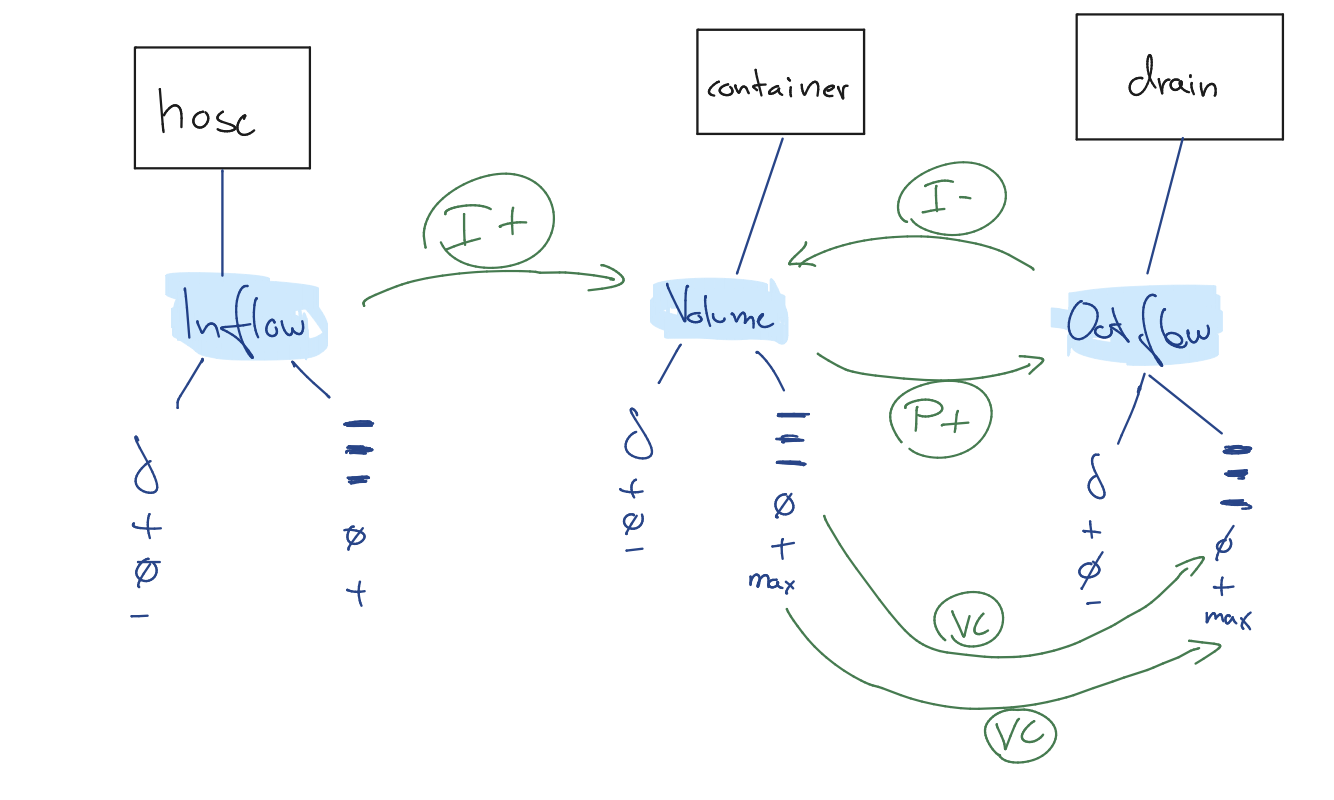 hose
container
drain
I+
I-
Inflow
Volume
Outflow
P+
∂
+
Ø
-
Ø
+
∂
+
Ø
-
Ø
+
max
∂
+
Ø
-
Ø
+
max
VC
VC